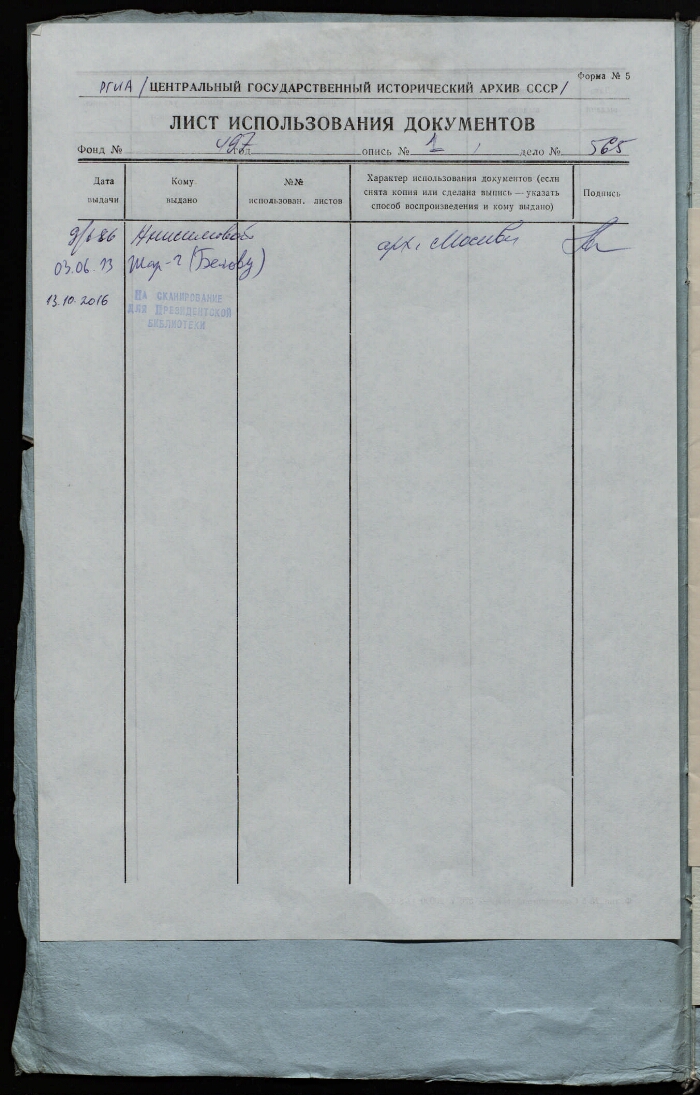 Форма № 5
РГИА / ЦЕНТРАЛЬНЫЙ ГОСУДАРСТВЕННЫЙ ИСТОРИЧЕСКИЙ АРХИВ СССР /
ЛИСТ ИСПОЛЬЗОВАНИЯ ДОКУМЕНТОВ
Фонд № 497 год опись № 1, дело № 565
Дата выдачи
Кому выдано
№№ использован. листов
Характер использования документов (если снята копия или сделана выпись — указать способ воспроизведения и кому выдано)
Подпись
Анисимовой арх. Москвы
03.06.13 (Белову)
13.10.2016 НА СКАНИРОВАНИЕ
ДЛЯ ПРЕЗИДЕНТСКОЙ
БИБЛИОТЕКИ